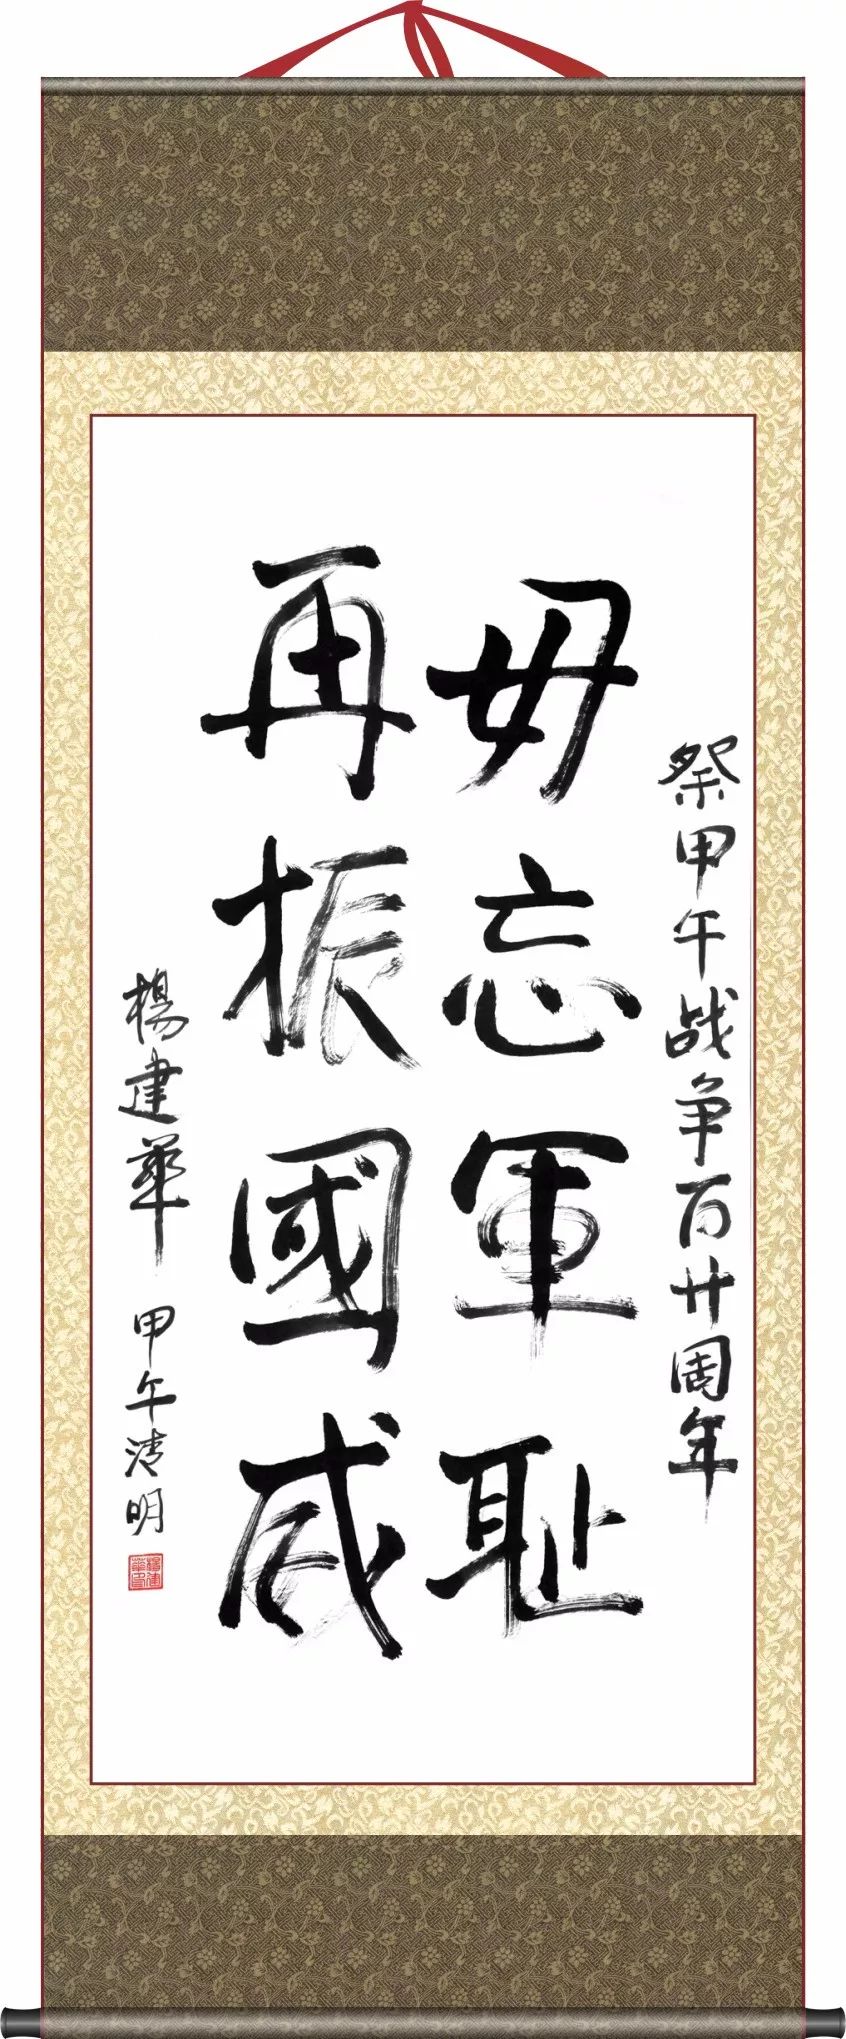 祭甲午战争百廿周年
毋忘軍耻
再振國威
楊建華 甲午清明
楊建華印